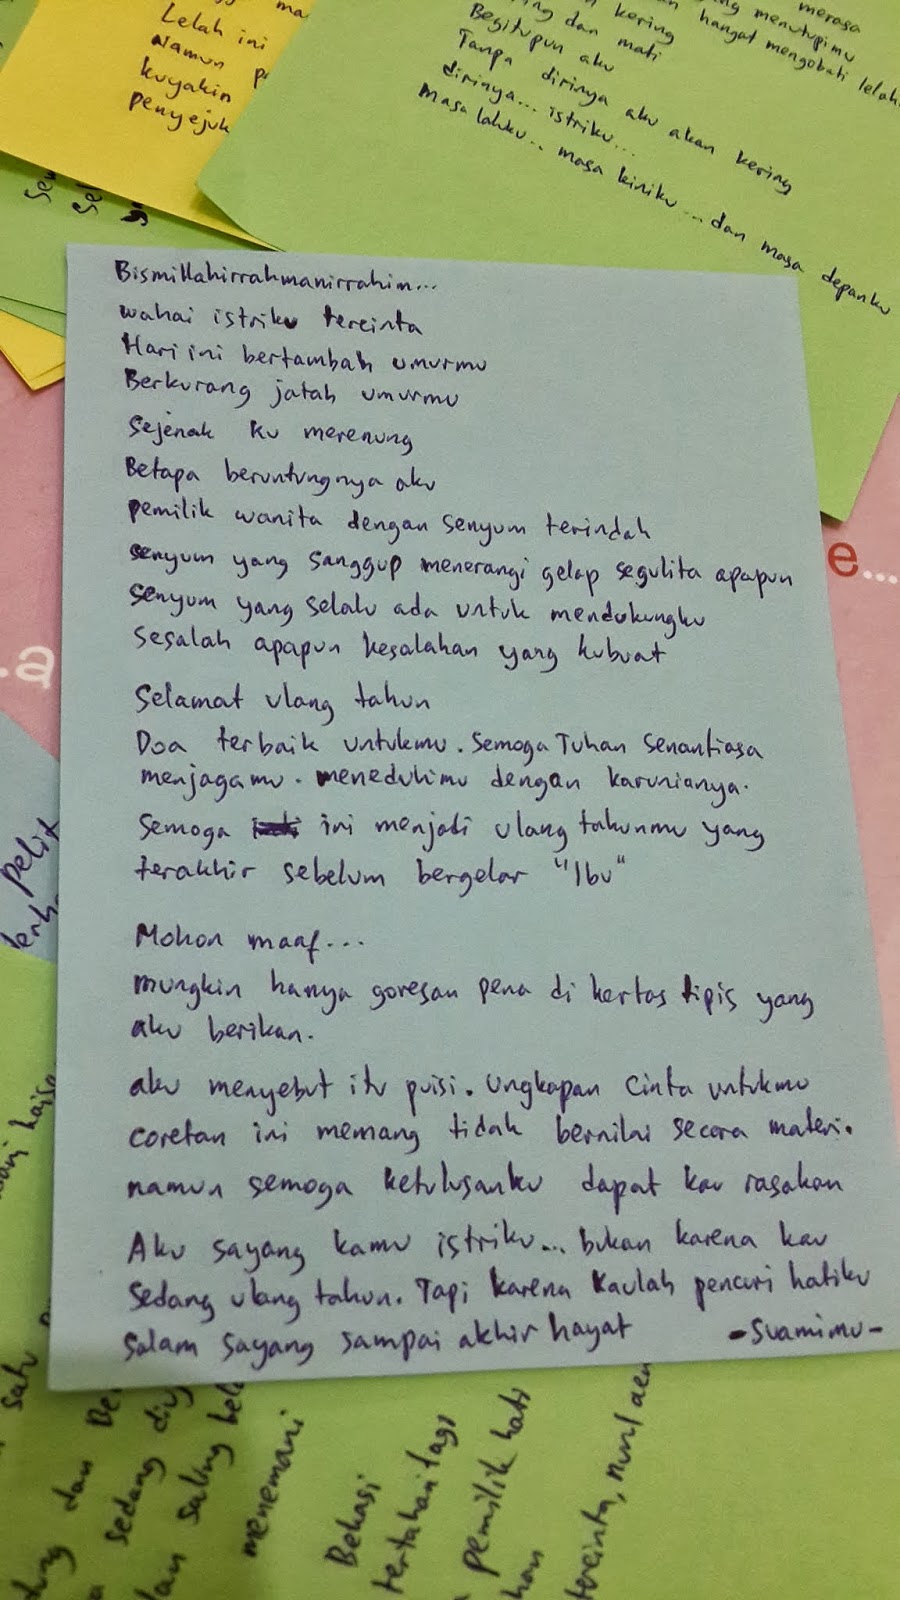 Lelah ini
Namun
kuyakin
penyejuk
merasa
menutupimu
kering hangat mengobati lelah
dan mati
Begitupun aku
Tanpa dirinya aku akan kering
dirinya... istriku...
Masa laluku.. masa kiniku... dan masa depanku
Bismillahirrahmanirrahim...
wahai istriku tercinta
Hari ini bertambah umurmu
Berkurang jatah umurmu
Sejenak ku merenung
Betapa beruntungnya aku
pemilik wanita dengan senyum terindah
senyum yang sanggup menerangi gelap segulita apapun
senyum yang selalu ada untuk mendukungku
Sesalah apapun kesalahan yang kubuat
Selamat ulang tahun
Doa terbaik untukmu. Semoga Tuhan senantiasa
menjagamu. meneduhimu dengan karunianya.
Semoga ini menjadi ulang tahunmu yang
terakhir sebelum bergelar "Ibu"
Mohon maaf...
mungkin hanya goresan pena di kertas tipis yang
aku berikan.
aku menyebut itu puisi. Ungkapan cinta untukmu
coretan ini memang tidak bernilai secara materi.
namun semoga ketulusanku dapat kau rasakan
Aku sayang kamu istriku... bukan karena kau
Sedang ulang tahun. Tapi karena Kaulah pencuri hatiku
Salam sayang sampai akhir hayat -Suamimu-
.a
e...
pelik
satu
dan
sedang
saling
menemani
Bekasi
tertahan lagi
pemilik hati